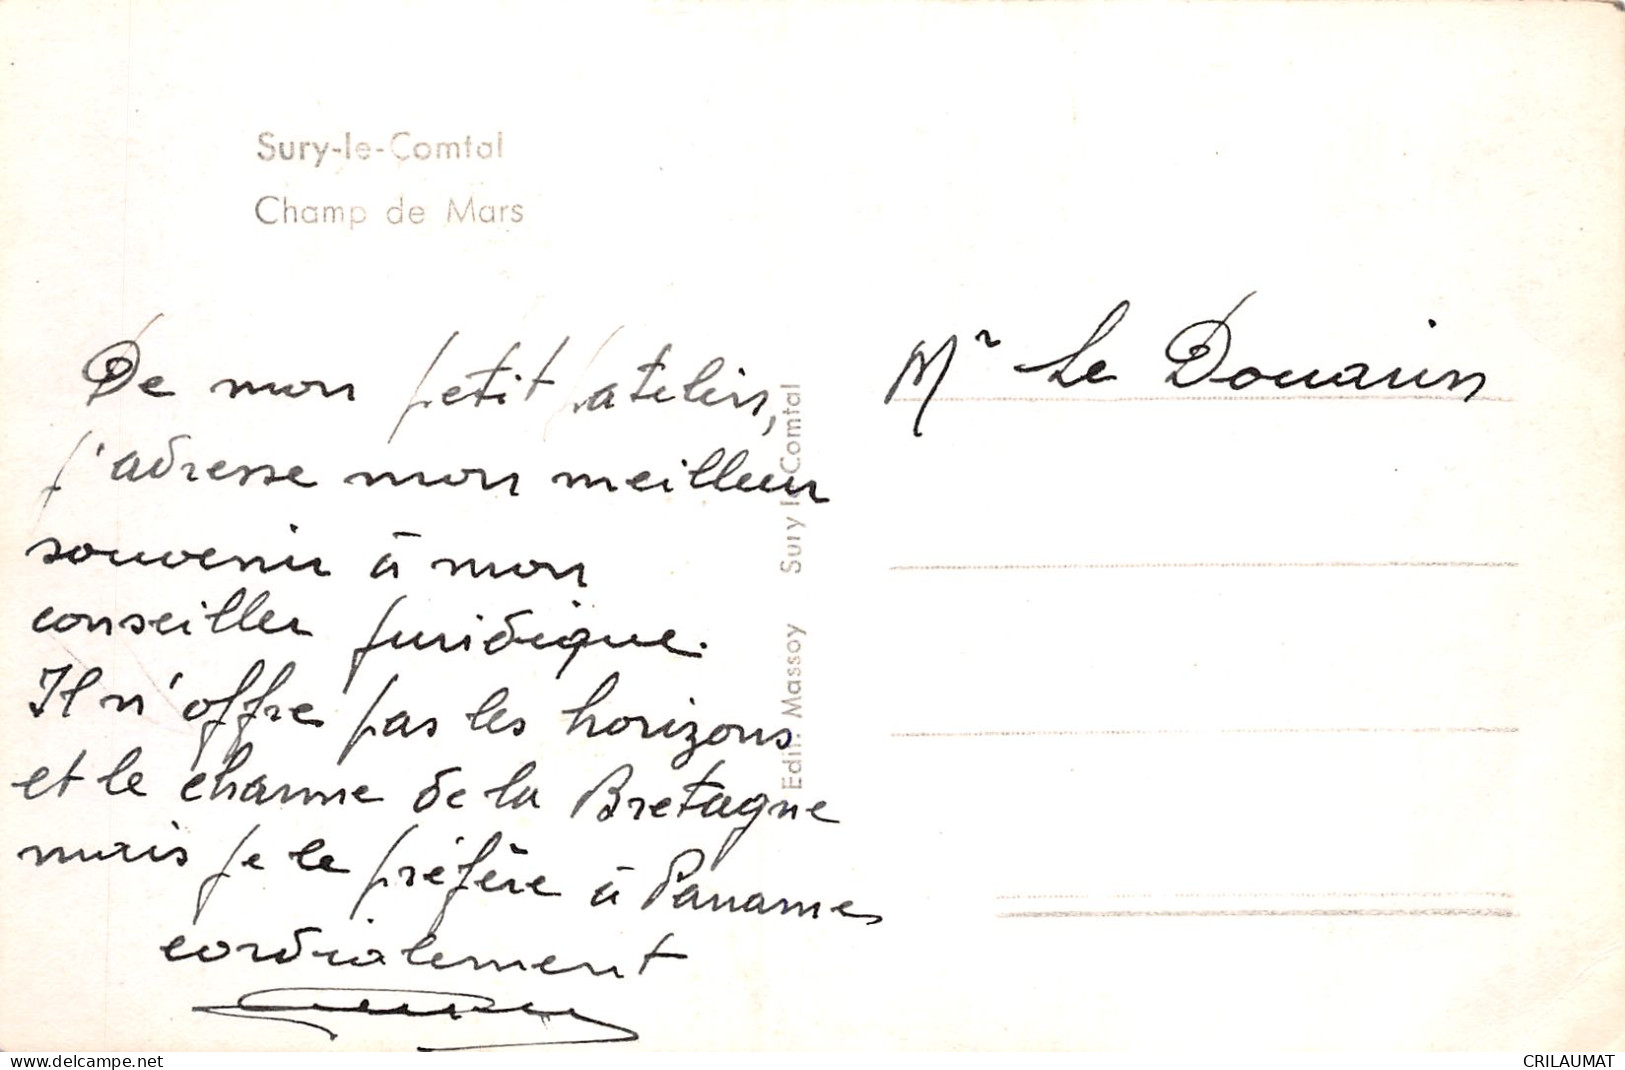 Sury-le-Comtal
Champ de Mars
De mon petit patelin,
j'adresse mon meilleur
souvenir à mon
conseiller juridique.
Il n'offre pas les horizons
et le charme de la Bretagne
mais je le préfère à Paname
cordialement
Mr Le Douarin
Edit. Massoy Sury le Comtal
https://www.delcampe.net
CRILAUMAT